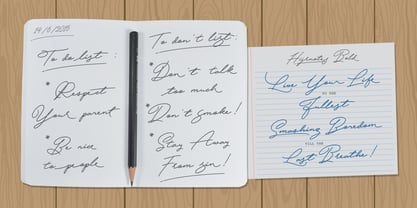 19/5/2015
To do list :
* Respect
Your parent
* Be nice
to people
To don't list :
* Don't talk
too much
* Don't smoke!
* Stay Away
From sin!
Hignates Bold
Live Your Life
TO THE
Fullest
Smashing Boredom
TILL THE
Last Breathe!